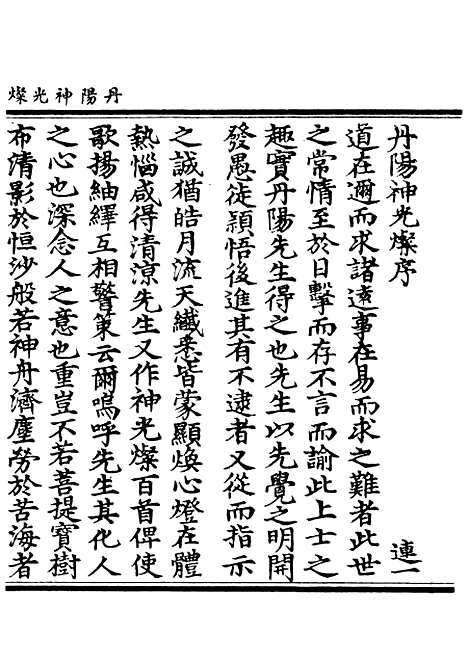 丹陽神光燦
丹陽神光燦序 連一
道在邇而求諸遠事在易而求之難者此世
之常情至於目擊而存不言而諭此上士之
趣實丹陽先生得之也先生以先覺之明開
發愚徒頴悟後進其有不逮者又從而指示
之誠猶皓月流天纖悉皆蒙顯煥心燈在體
熱惱咸得清涼先生又作神光燦百首俾使
歌揚紬繹互相警策云爾嗚呼先生其化人
之心也深念人之意也重豈不若菩提寶樹
布清影於恒沙般若神舟濟塵勞於苦海者